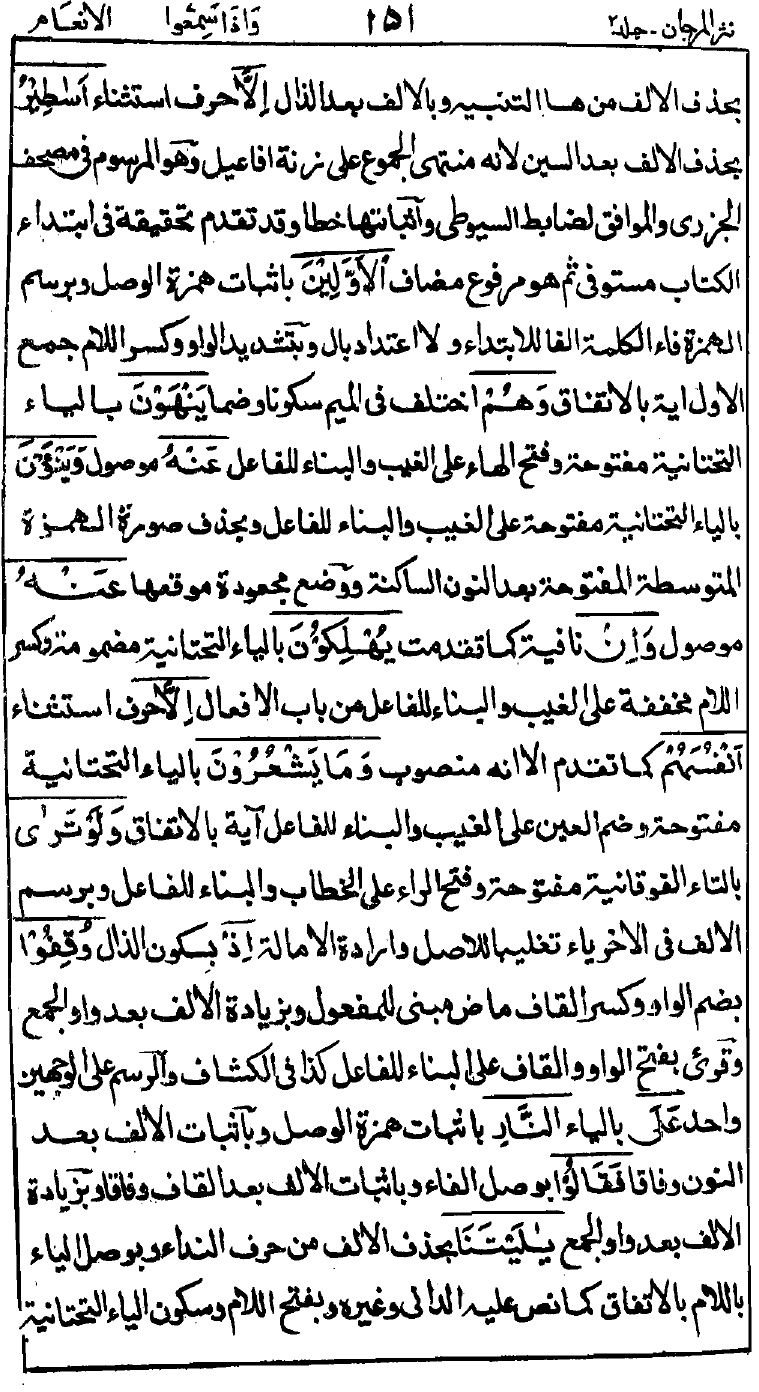 نثر المرجان - جلد ٢ ١٥١ وَاِذَا سَمِعُوا الانعام
بحذف الالف من هـا التنبيه وبالالف بعد الذال اِلَّا حرف استثناء اَسٰطِيْرُ
بحذف الالف بعد السين لانه منتهى الجموع على زنة افاعيل وهو المرسوم فى مصحف
الجزرى والموافق لضابط السيوطى وآثباتها خطا وقد تقدم تحقيقة فى ابتداء
الكتاب مستوفى ثم هو مرفوع مضاف الْاَوَّلِيْنَ باثبات همزة الوصل وبرسم
الهمزة فاء الكلمة الفا للابتداء ولا اعتداد بال وبتشديد الواو وكسر اللام جمع
الاول اية بالاتفاق وَهُمْ اختلف فى الميم سكونا وضما يَنْهَوْنَ بالياء
التحتانية مفتوحة وفتح الهاء على الغيب والبناء للفاعل عَنْهُ موصول وَيَنْـَٔوْنَ
بالياء التحتانية مفتوحة على الغيب والبناء للفاعل وبحذف صورة الهمزة
المتوسطة المفتوحة بعد النون الساكنة ووضع مجعودة موقعها عَنْهُ
موصول وَاِنْ نافية كما تقدمت يُهْلِكُوْنَ بالياء التحتانية مضمومة وكسر
اللام مخففة على الغيب والبناء للفاعل من باب الافعال اِلَّا حرف استثناء
اَنْفُسَهُمْ كما تقدم الا انه منصوب وَمَا يَشْعُرُوْنَ بالياء التحتانية
مفتوحة وضم العين على الغيب والبناء للفاعل آية بالاتفاق وَلَوْ تَرٰى
بالتاء الفوقانية مفتوحة وفتح الراء على الخطاب والبناء للفاعل وبرسم
الالف فى الاخر ياء تغليبا للاصل وارادة الامالة اِذْ بسكون الذال وُقِفُوْا
بضم الواو وكسر القاف ماض مبنى للمفعول وبزيادة الالف بعد واو الجمع
وقرئ بفتح الواو والقاف على البناء للفاعل كذا فى الكشاف والرسم على الوجهين
واحد عَلَى بالياء النَّارِ باثبات همزة الوصل وبآثبات الالف بعد
النون وفاقا فَقَالُوْا بوصل الفاء وباثبات الالف بعد القاف وفاقا وبزيادة
الالف بعد واو الجمع يٰلَيْتَنَا بحذف الالف من حرف النداء وبوصل الياء
باللام بالاتفاق كما نص عليه الدانى وغيره وبفتح اللام وسكون الياء التحتانية